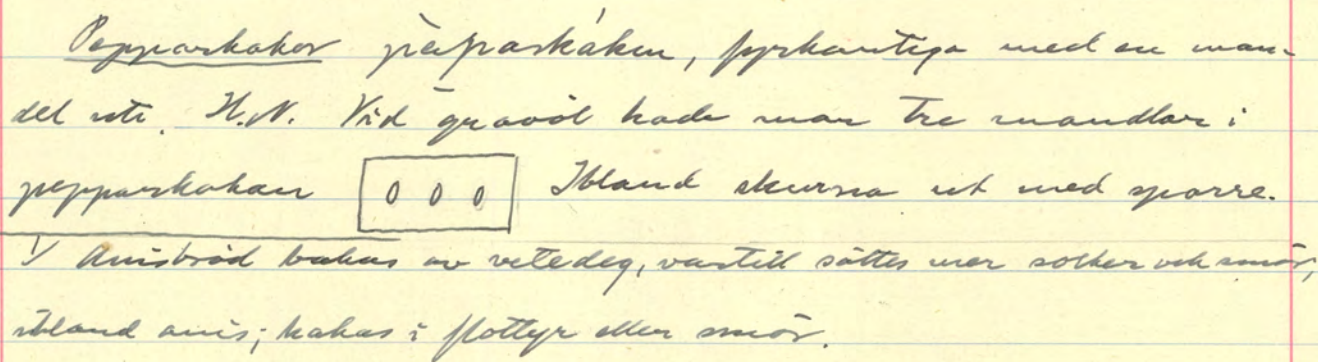 Pepparkakor pèparkákur, fyrkantiga med en man-
del uti. H.N. Vid gravöl hade man tre mandlar i
pepparkakan 0 0 0 Ibland skurna ut med sporre.
1/ Anisbröd bakas av vetedeg, vartill sättes mer socker och smör,
ibland anis; kokas i flottyr eller smör.